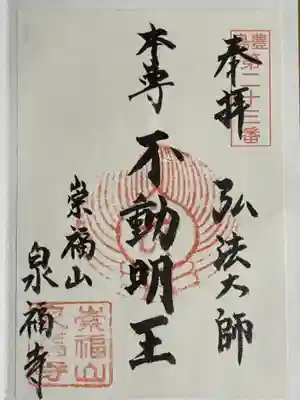 豊島第二十三番
奉拝
弘法大師
本尊
不動明王
崇福山
泉福寺
崇福山
泉福寺